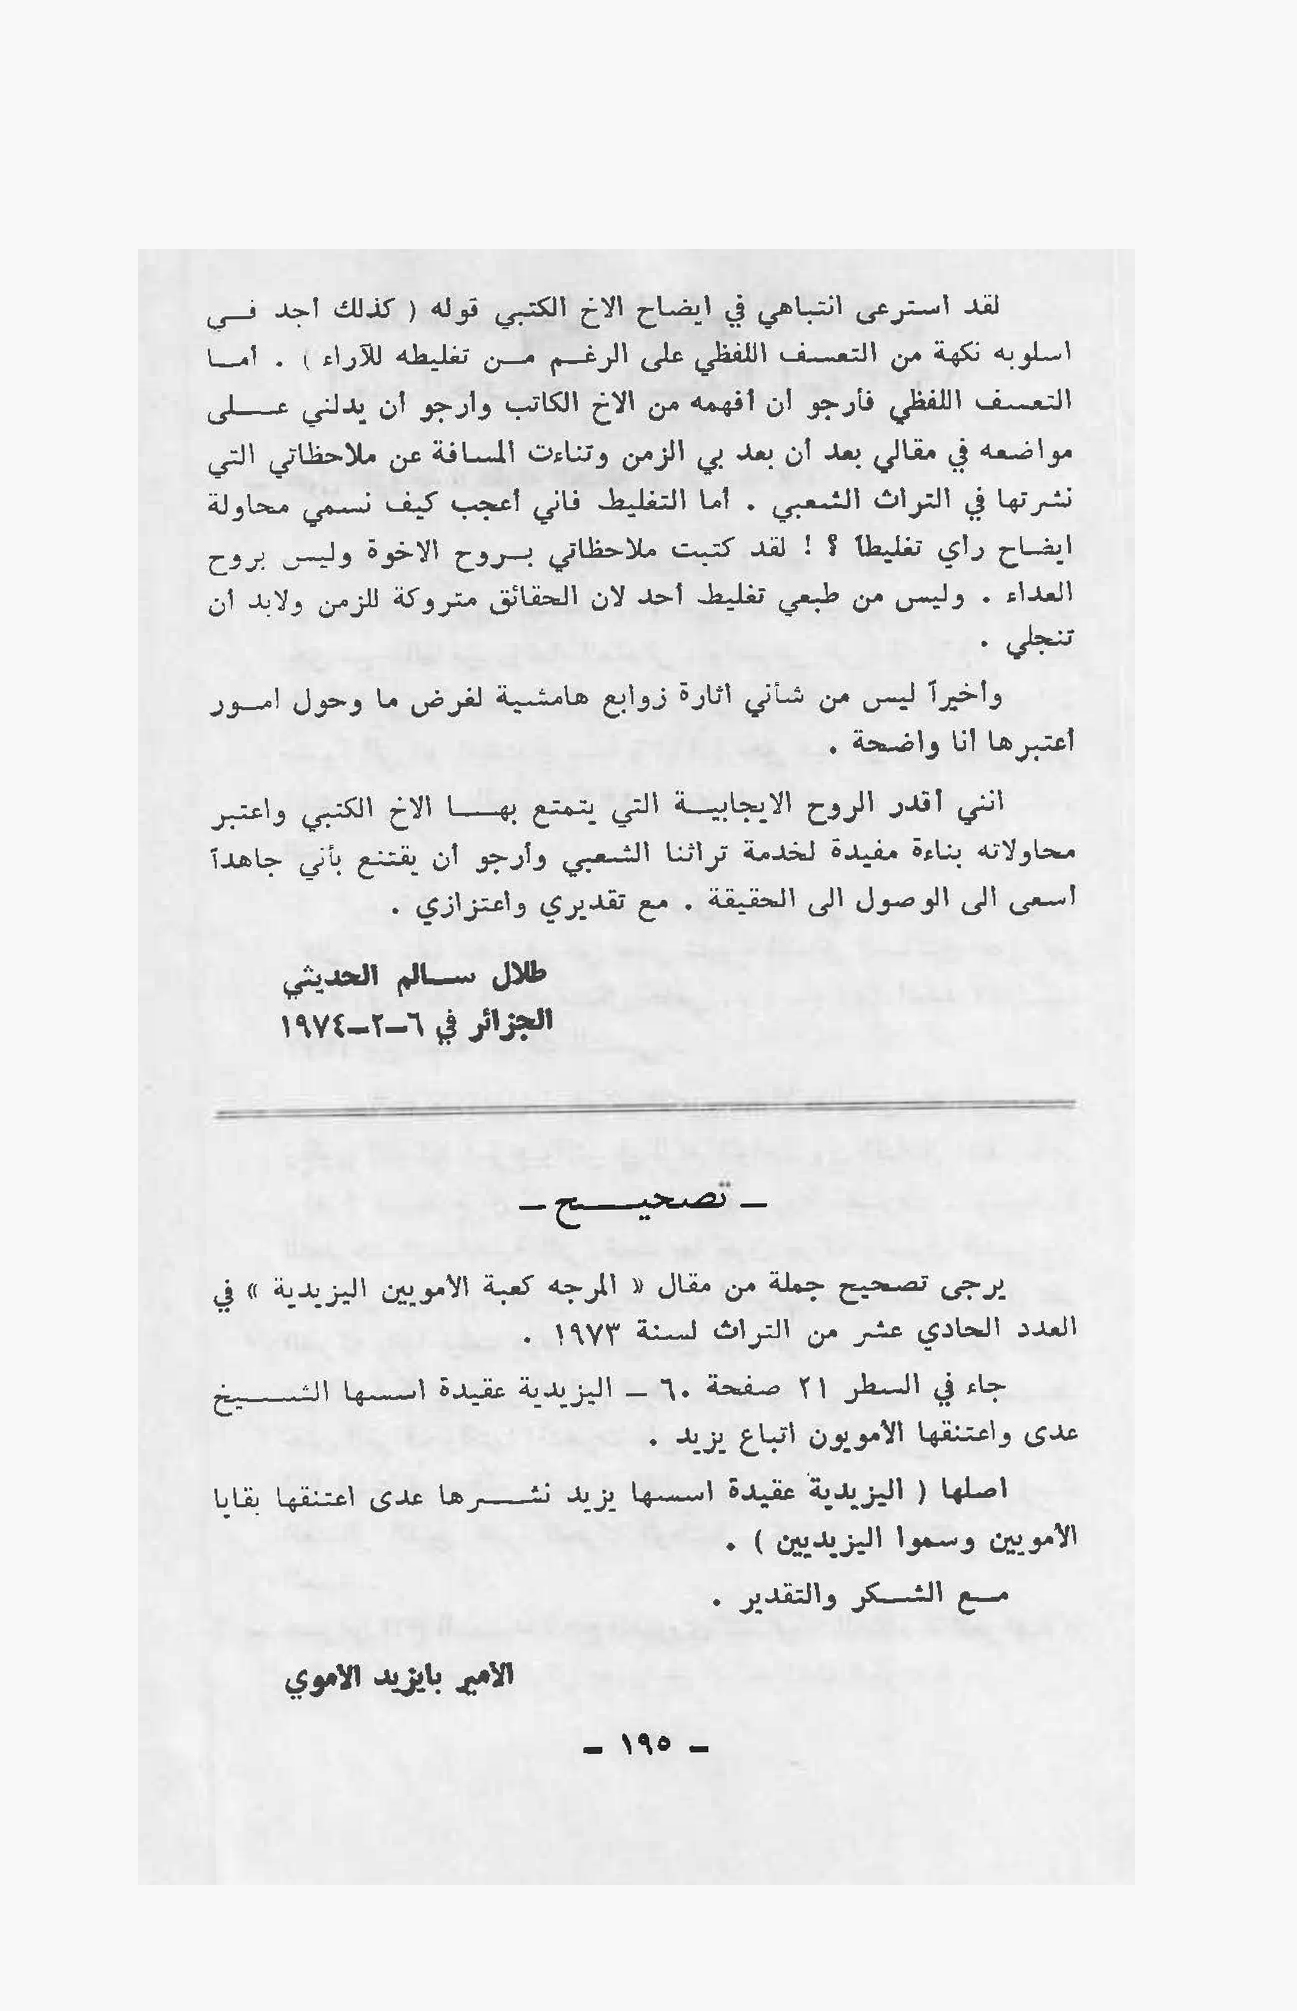 لقد استرعى انتباهي في ايضاح الاخ الكتبي قوله ( كذلك اجد في
اسلوبه نكهة من التعسف اللفظي على الرغم من تغليطه للآراء ) . أما
التعسف اللفظي فأرجو ان أفهمه من الاخ الكاتب وأرجو ان يدلني على
مواضعه في مقالي بعد أن بعد بي الزمن وتناءت المسافة عن ملاحظاتي التي
نشرتها في التراث الشعبي . أما التغليط فاني أعجب كيف نسمي محاولة
ايضاح رأي تغليطاً ؟ ! لقد كتبت ملاحظاتي بروح الاخوة وليس بروح
العداء . وليس من طبعي تغليط أحد لان الحقائق متروكة للزمن ولابد أن
تنجلي .
وأخيراً ليس من شأني اثارة زوابع هامشية لغرض ما وحول امور
أعتبرها أنا واضحة .
انني أقدر الروح الايجابية التي يتمتع بها الاخ الكتبي واعتبر
محاولاته بناءة مفيدة لخدمة تراثنا الشعبي وأرجو أن يقتنع بأني جاهداً
اسعى الى الوصول الى الحقيقة . مع تقديري واعتزازي .
طلال سالم الحديثي
الجزائر في ٦-٢-١٩٧٤
– تصحيح –
يرجى تصحيح جملة من مقال « المرجه كعبة الأمويين اليزيدية » في
العدد الحادي عشر من التراث لسنة ١٩٧٣ .
جاء في السطر ٢١ صفحة ٦٠ – اليزيدية عقيدة اسسها الشيخ
عدى واعتنقها الأمويون اتباع يزيد .
اصلها ( اليزيدية عقيدة اسسها يزيد نشرها عدى اعتنقها بقايا
الأمويين وسموا اليزيديين ) .
مع الشكر والتقدير .
الأمير بايزيد الأموي
– ١٩٥ –